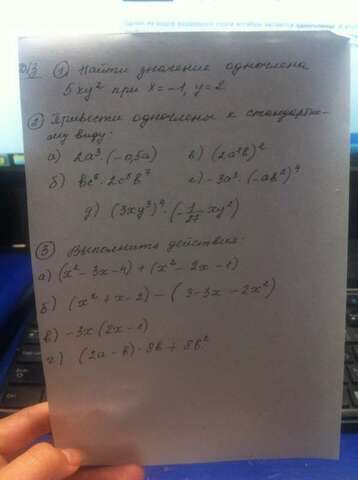 Д/З ① Найти значение одночлена
5xy² при x = -1, y = 2
② Привести одночлены к стандартно-
му виду:
а) 2a³ · (-0,5a) в) (2a³b)²
б) bc⁶ · 2c⁸b⁷ г) -3a³ · (-ab²)⁴
д) (3xy³)⁴ · (-1/27 xy²)
③ Выполнить действия:
а) (x² - 3x - 4) + (x² - 2x - 1)
б) (x² + x - 2) - (3 - 3x - 2x²)
в) -3x (2x - 1)
г) (2a - b) · 8b + 8b²